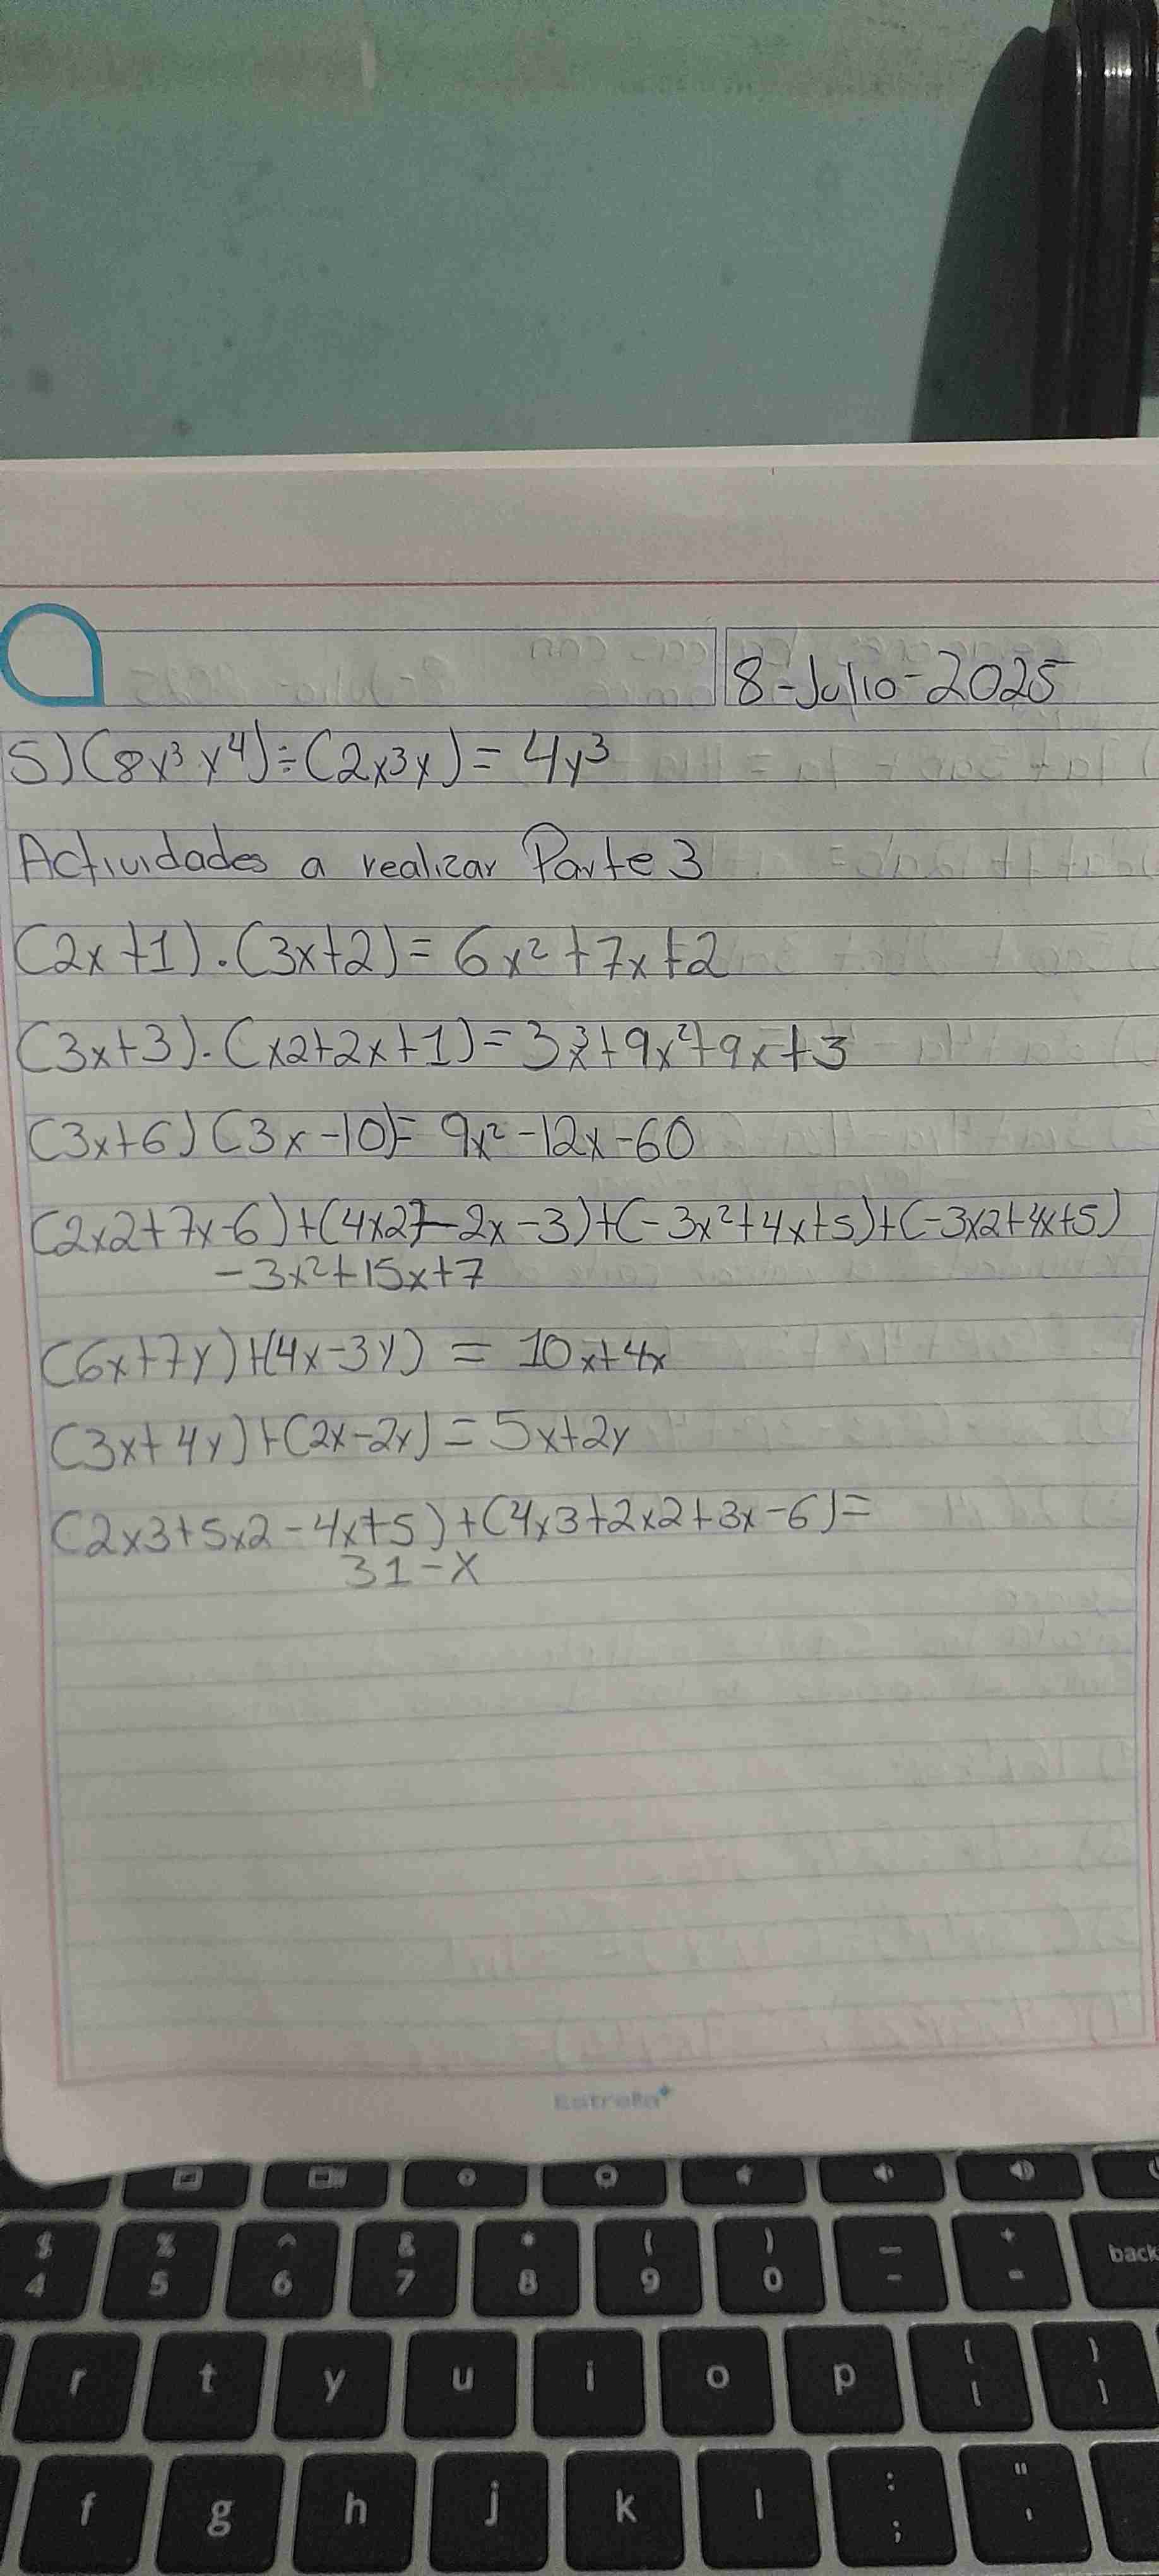 8-Julio-2025
5) (8x³ y⁴)÷(2x³y) = 4y³
Actividades a realizar Parte 3
(2x+1).(3x+2) = 6x²+7x+2
(3x+3).(x2+2x+1) = 3x³+9x²+9x+3
(3x+6) (3x-10)= 9x²-12x-60
(2x2+7x-6)+(4x2+-2x-3)+(-3x²+4x+5)+(-3x2+4x+5)
-3x²+15x+7
(6x+7y)+(4x-3y) = 10x+4x
(3x+4y)+(2x-2y) = 5x+2y
(2x3+5x2-4x+5)+(4x3+2x2+3x-6)=
31-x
Estrella
$ % ^ & * ( ) — + back
4 5 6 7 8 9 0 - =
r t y u i o p { [ } ]
f g h j k l : ; " '